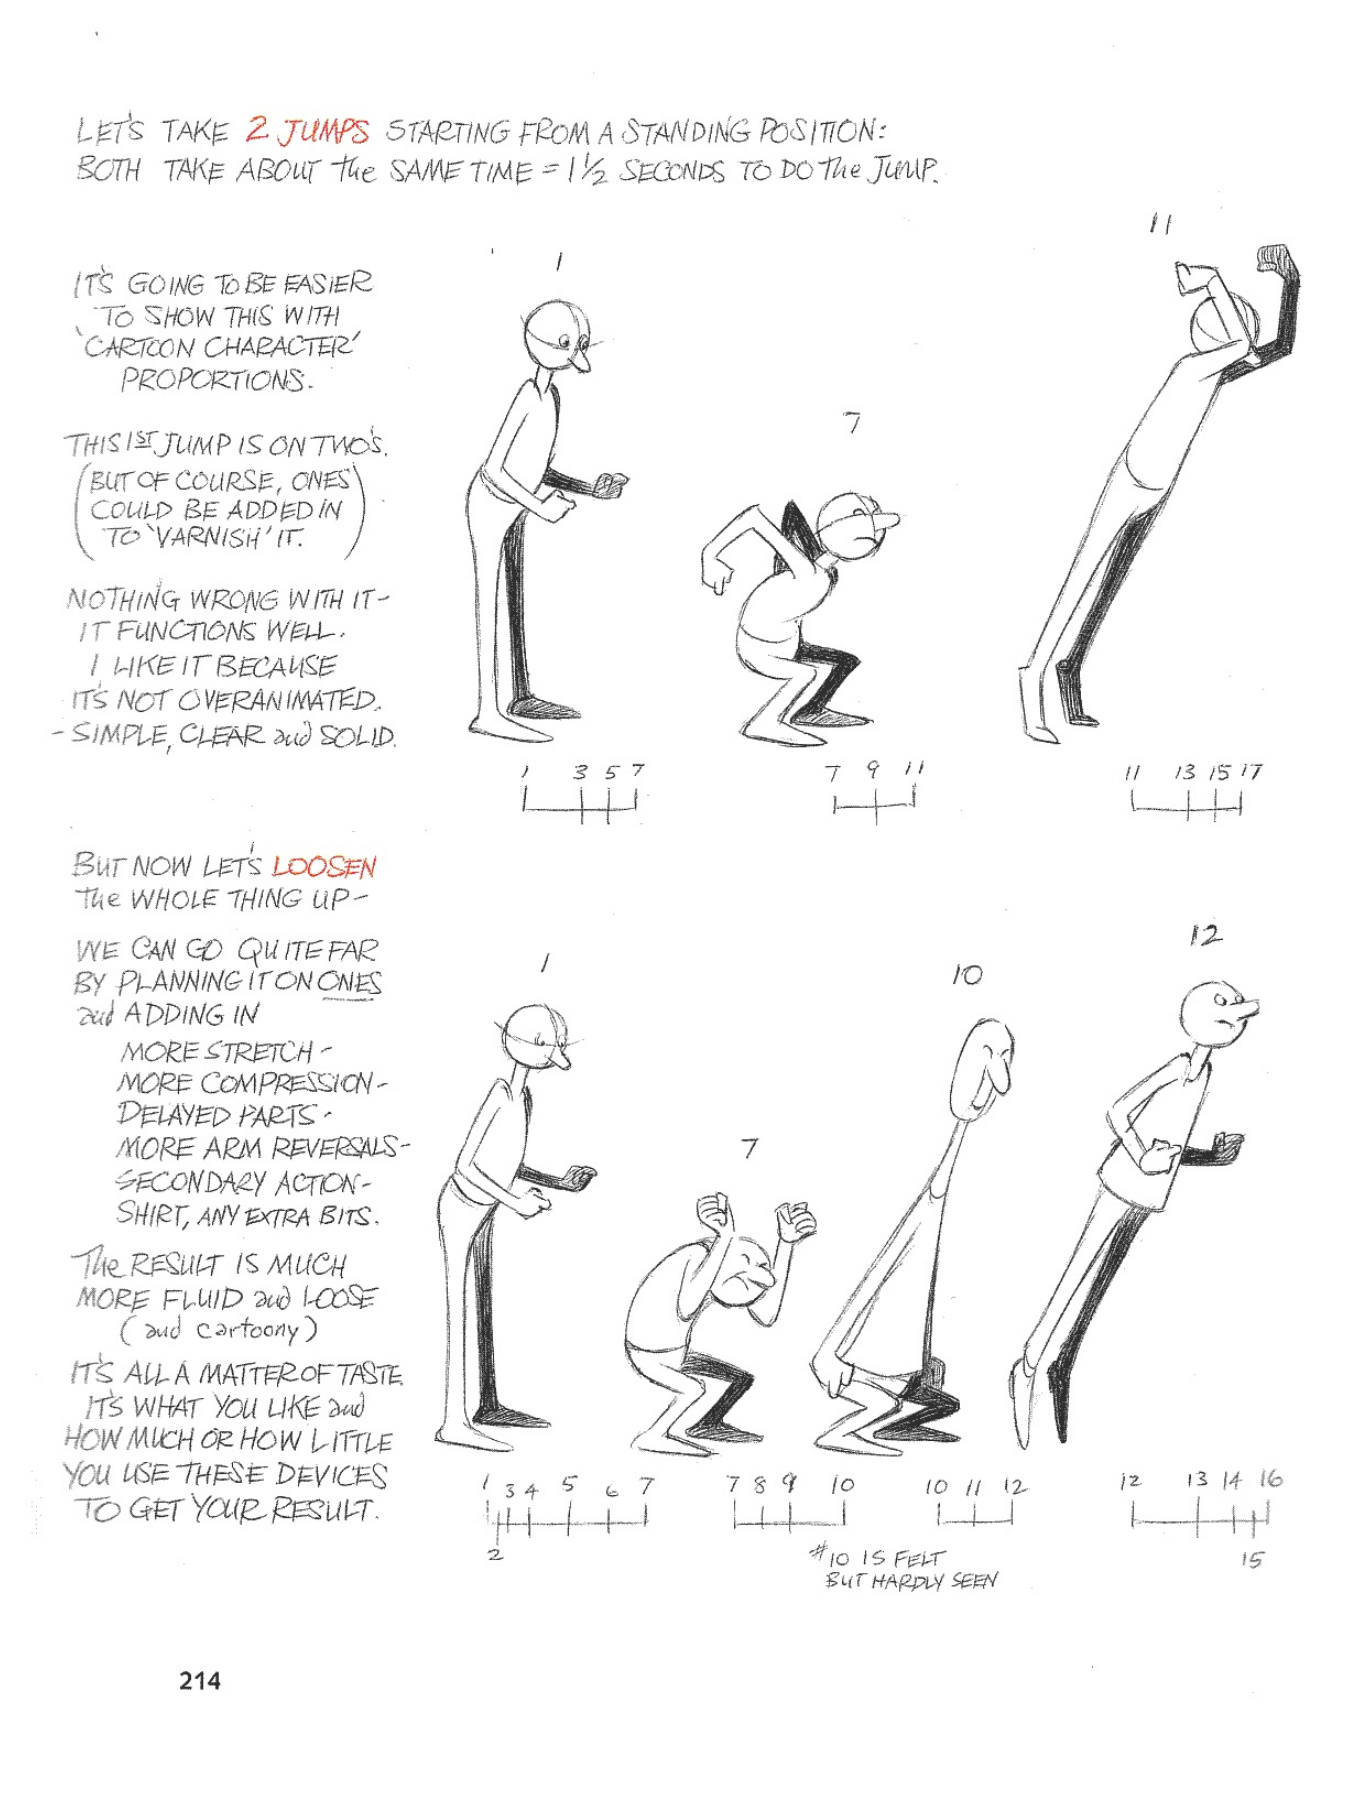 LET'S TAKE 2 JUMPS STARTING FROM A STANDING POSITION:
BOTH TAKE ABOUT the SAME TIME = 1 1/2 SECONDS TO DO The JUMP.
IT'S GOING TO BE EASIER
TO SHOW THIS WITH
'CARTOON CHARACTER'
PROPORTIONS.
THIS 1ST JUMP IS ON TWO'S.
(BUT OF COURSE, ONES
COULD BE ADDED IN
TO 'VARNISH' IT.)
NOTHING WRONG WITH IT-
IT FUNCTIONS WELL.
I LIKE IT BECAUSE
IT'S NOT OVERANIMATED.
- SIMPLE, CLEAR and SOLID.
1
7
11
1 3 5 7
7 9 11
11 13 15 17
BUT NOW LET'S LOOSEN
The WHOLE THING UP-
WE CAN GO QUITE FAR
BY PLANNING IT ON ONES
and ADDING IN
MORE STRETCH -
MORE COMPRESSION -
DELAYED PARTS -
MORE ARM REVERSALS -
SECONDARY ACTION -
SHIRT, ANY EXTRA BITS.
The RESULT IS MUCH
MORE FLUID and LOOSE
(and cartoony)
IT'S ALL A MATTER OF TASTE.
IT'S WHAT YOU LIKE and
HOW MUCH OR HOW LITTLE
YOU USE THESE DEVICES
TO GET YOUR RESULT.
1
7
10
12
1 3 4 5 6 7
2
7 8 9 10
10 11 12
12 13 14 16
15
#10 IS FELT
BUT HARDLY SEEN
214